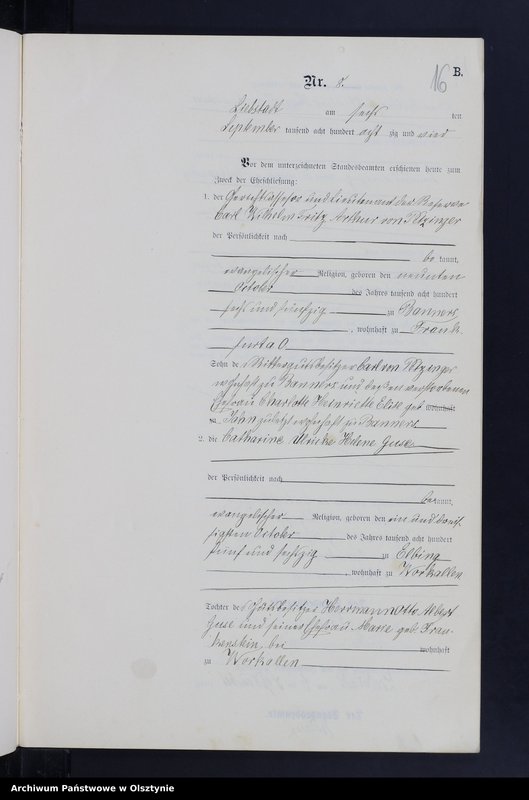 16 B.
Nr. 8.
Liebstadt am sechs ten
September tausend acht hundert acht zig und
Vor dem unterzeichneten Standesbeamten erschienen heute zum
Zweck der Eheschließung:
1. der Gerichtsassessor und Lieutenant der Reserve
Carl Wilhelm Fritz Arthur von
der Persönlichkeit nach
be kannt,
evangelischer Religion, geboren den neunten
October des Jahres tausend acht hundert
sechs und fünfzig zu Banners
, wohnhaft zu Frank
furt a O.
Sohn des Rittergutsbesitzer Carl von
wohnhaft zu Banners und dessen verstorbenen
Ehefrau Charlotte Henriette Elise geb wohnhaft
zu Jahn zuletzt wohnhaft zu Banners
2. die Catharine Ulrike Helene Guse
der Persönlichkeit nach
be kannt,
evangelischer Religion, geboren den ein und dreis
sigsten October des Jahres tausend acht hundert
fünf und sechzig zu Elbing
, wohnhaft zu Workallen
Tochter des Gutsbesitzer Herrmann Otto Albert
Guse und seiner Ehefrau Marie geb. Fran-
kenstein, bei wohnhaft
zu Workallen
Archiwum Państwowe w Olsztynie